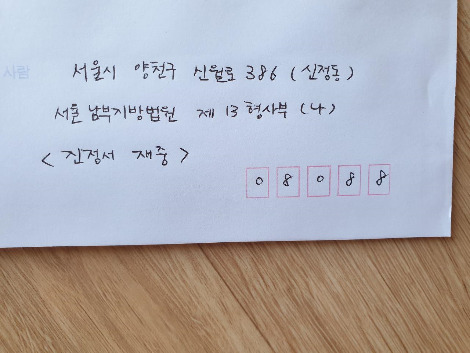 사람
서울시 양천구 신월로 386 (신정동)
서울남부지방법원 제13형사부 (나)
<진정서 재중>
08088